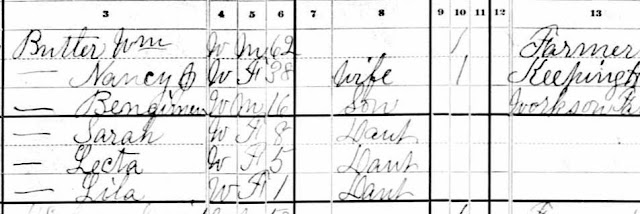 3 4 5 6 7 8 9 10 11 12 13
Butter Wm W M 62 1 Farmer
— Nancy J W F 38 Wife 1 Keeping H
— Bengirmen W M 16 Son Works on Fa
— Sarah W F 8 Daut
— Lecta W F 5 Daut
— Lila W F 1 Daut